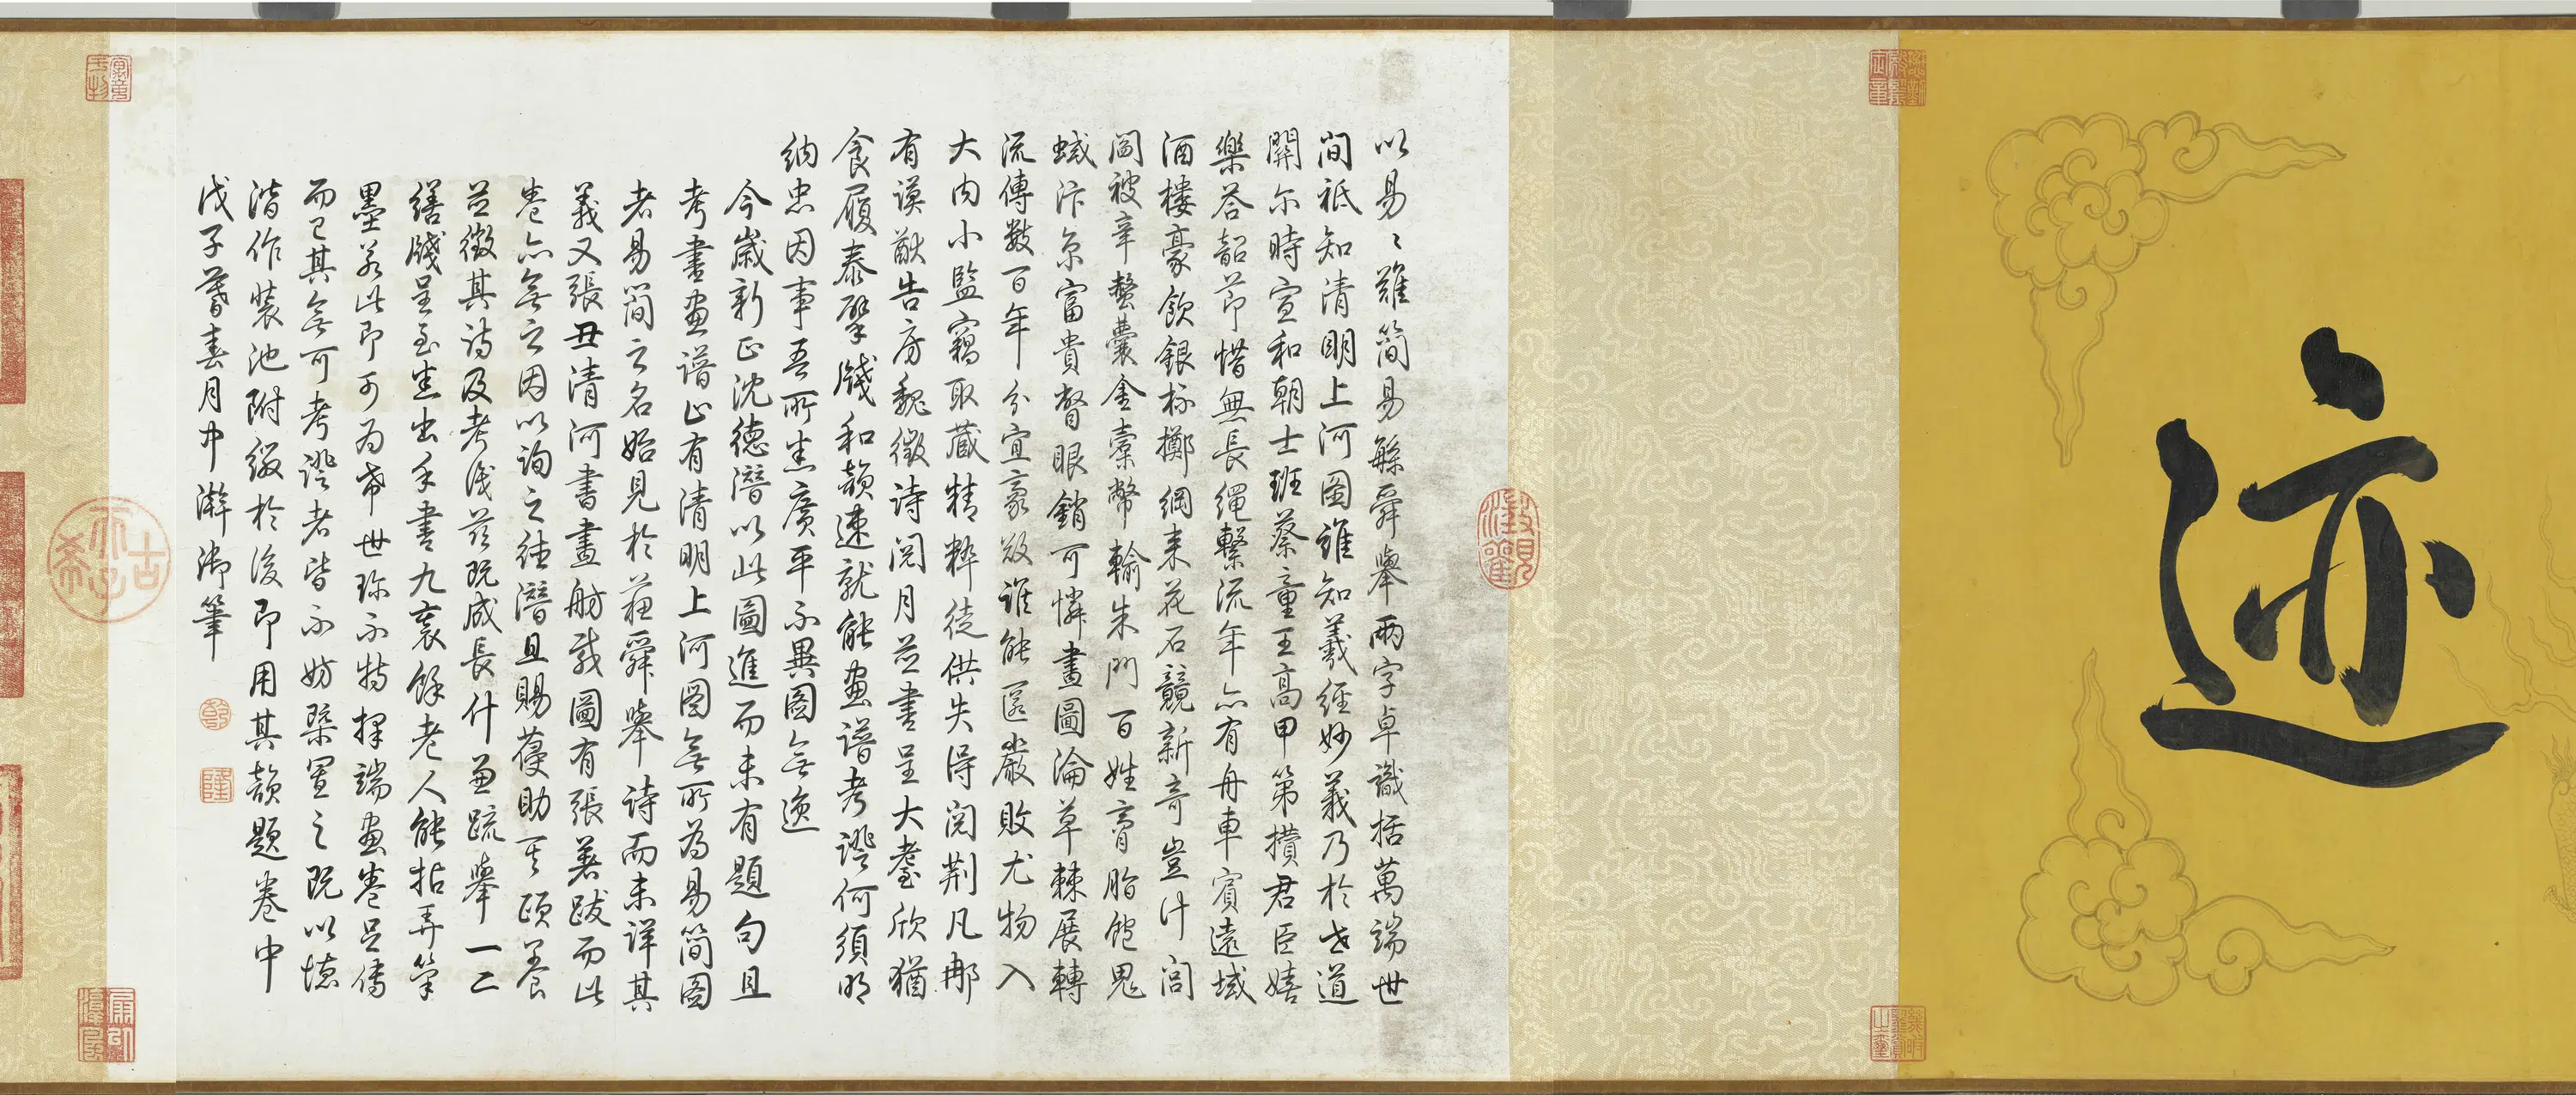 迹
以易之難簡易繇舜舉兩字卓識括萬端世
間祗知清明上河圖誰知羲經妙義乃於世道
關爾時宣和朝士班蔡童王高甲第攢君臣嬉
樂荅韶節惜無長繩繫流年亦有舟車賓遠域
酒樓豪飲銀杯擲綱來花石競新奇豈計閭
閻被辛螫囊金橐幣輸朱門百姓膏脂飽鬼
蜮汴京富貴瞥眼銷可憐畫圖淪草棘展轉
流傳數百年分宜豪敓誰能匿嚴敗尤物入
大內小監竊取藏精粹徒供失得閱荆凡那
有謨猷告房魏徵詩閱月並書呈大耋欣猶
食履泰擘牋和韻速就能畫譜考證何須明
納忠因事吾所嘉廣平不異圖無逸
今歲新正沈德潛以此圖進而未有題句且
考書畫譜止有清明上河圖無所為易簡圖
者易簡之名始見於蘇舜舉詩而未詳其
義又張丑清河書畫舫載圖有張著跋而此
卷亦無之因以詢之德潛且賜葠助其頤養
並徵其詩及考識茲既成長什兼疏舉一二
繕牋呈至嘉出手書九袠餘老人能拈弄筆
墨若此即可為希世珍不特擇端畫卷足傳
而已其無可考證者皆不妨槩置之既以德
潛作裝池附綴於後即用其韻題卷中
戊子暮春月中澣御筆
古希天子
乾
隆